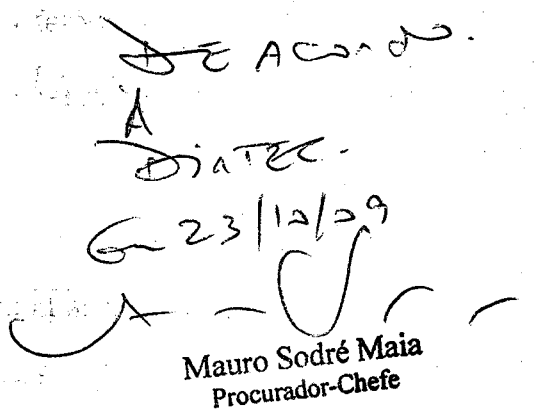 DE ACORDO.
À
DIATEC.
Em 23/10/09
Mauro Sodré Maia
Procurador-Chefe